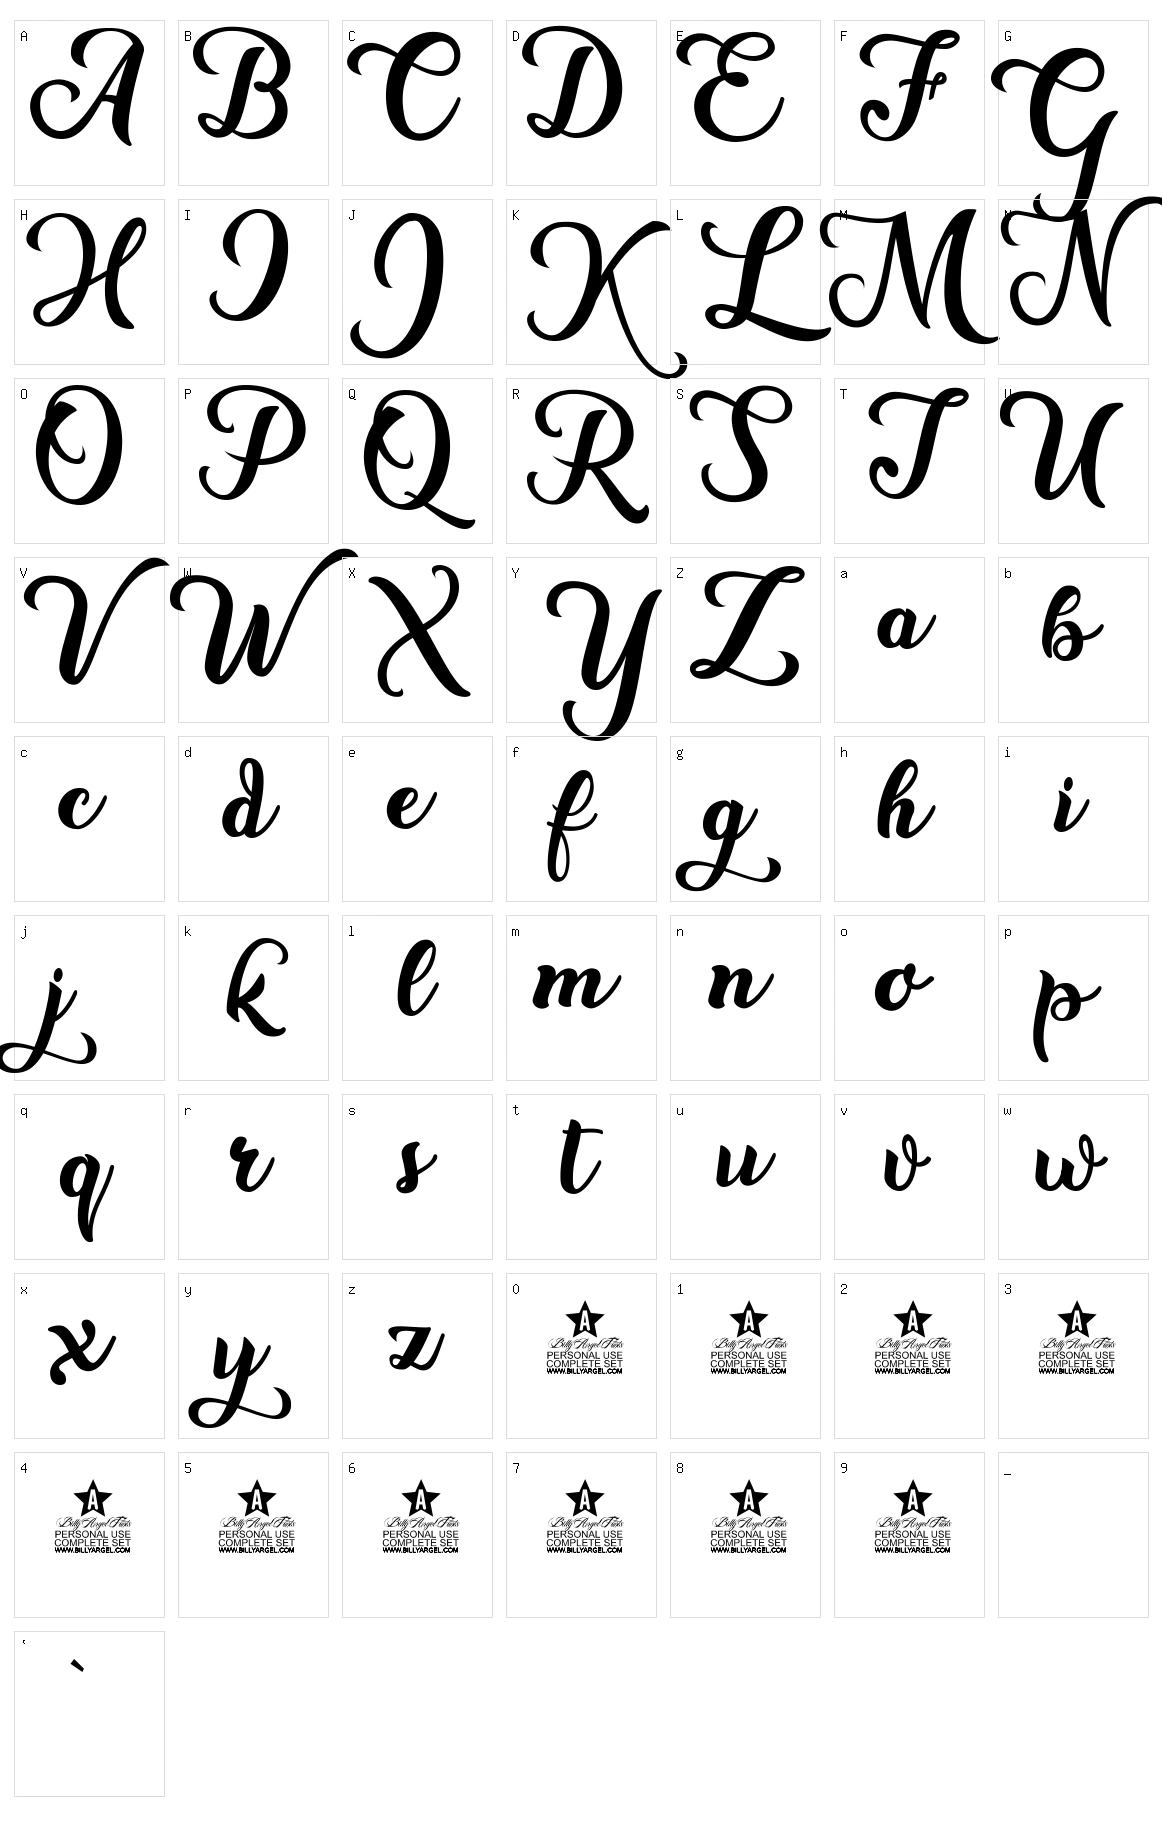 A B C D E F G
A B C D E F G
H I J K L M N
H I J K L M N
O P Q R S T U
O P Q R S T U
V W X Y Z a b
V W X Y Z a b
c d e f g h i
c d e f g h i
j k l m n o p
j k l m n o p
q r s t u v w
q r s t u v w
x y z 0 1 2 3
x y z
A A A A
Billy Argel Fonts Billy Argel Fonts Billy Argel Fonts Billy Argel Fonts
PERSONAL USE PERSONAL USE PERSONAL USE PERSONAL USE
COMPLETE SET COMPLETE SET COMPLETE SET COMPLETE SET
WWW.BILLYARGEL.COM WWW.BILLYARGEL.COM WWW.BILLYARGEL.COM WWW.BILLYARGEL.COM
4 5 6 7 8 9 _
A A A A A A
Billy Argel Fonts Billy Argel Fonts Billy Argel Fonts Billy Argel Fonts Billy Argel Fonts Billy Argel Fonts
PERSONAL USE PERSONAL USE PERSONAL USE PERSONAL USE PERSONAL USE PERSONAL USE
COMPLETE SET COMPLETE SET COMPLETE SET COMPLETE SET COMPLETE SET COMPLETE SET
WWW.BILLYARGEL.COM WWW.BILLYARGEL.COM WWW.BILLYARGEL.COM WWW.BILLYARGEL.COM WWW.BILLYARGEL.COM WWW.BILLYARGEL.COM
‘
`